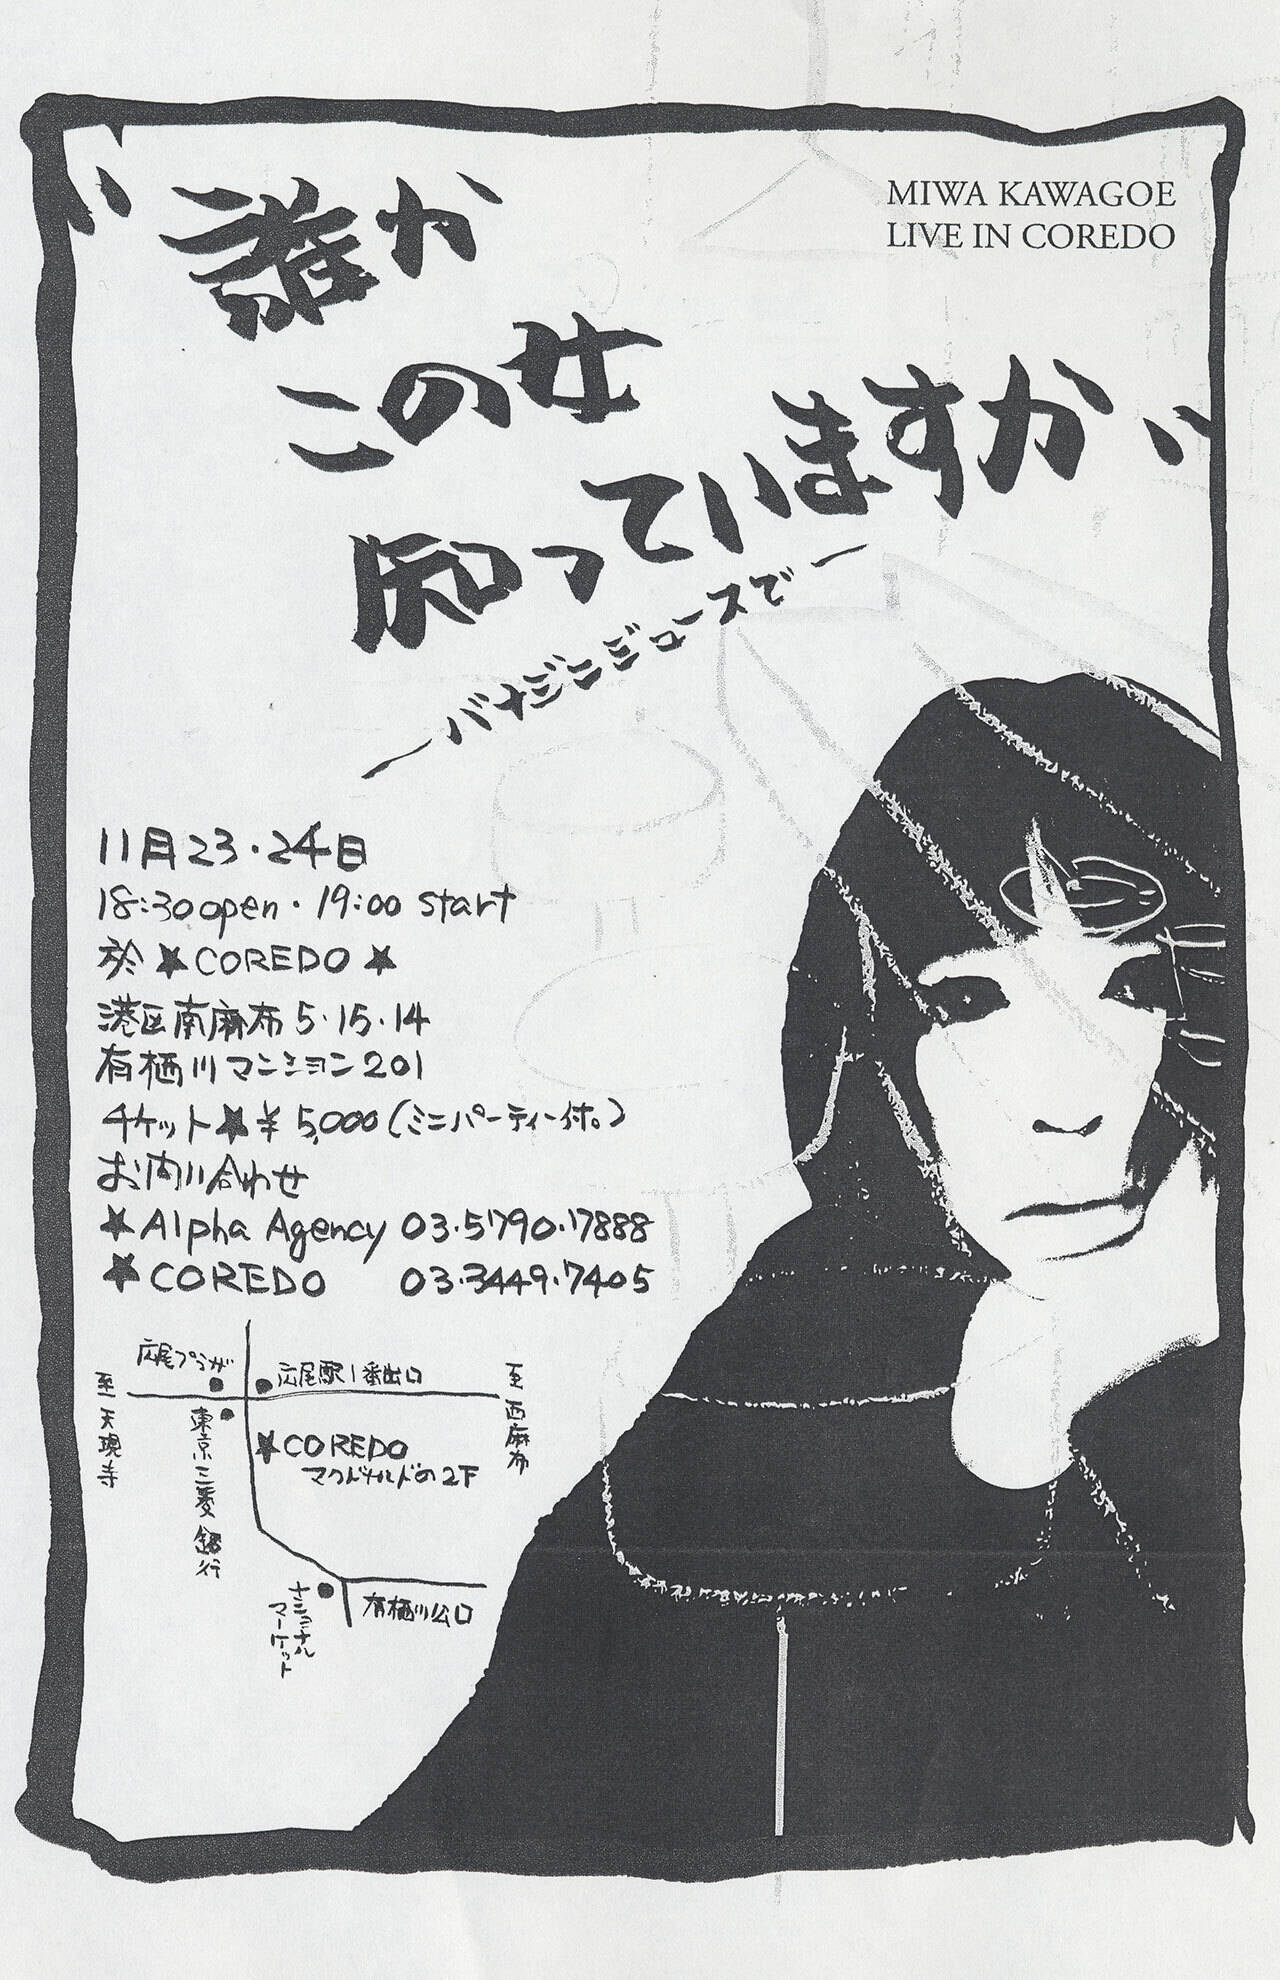 MIWA KAWAGOE
LIVE IN COREDO
"誰か
この女
知っていますか"
11月23・24日
18:30 open・19:00 start
於★COREDO★
港区南麻布5・15・14
有栖川マンション201
チケット★¥5,000(ミニパーティー付。)
お問い合わせ
★Alpha Agency 03・5790・7888
★COREDO 03・3449・7405
広尾プラザ
広尾駅1番出口
至天現寺
至西麻布
東京三菱銀行
★COREDO
マクドナルドの2F
ナショナル
マーケット
有栖川公